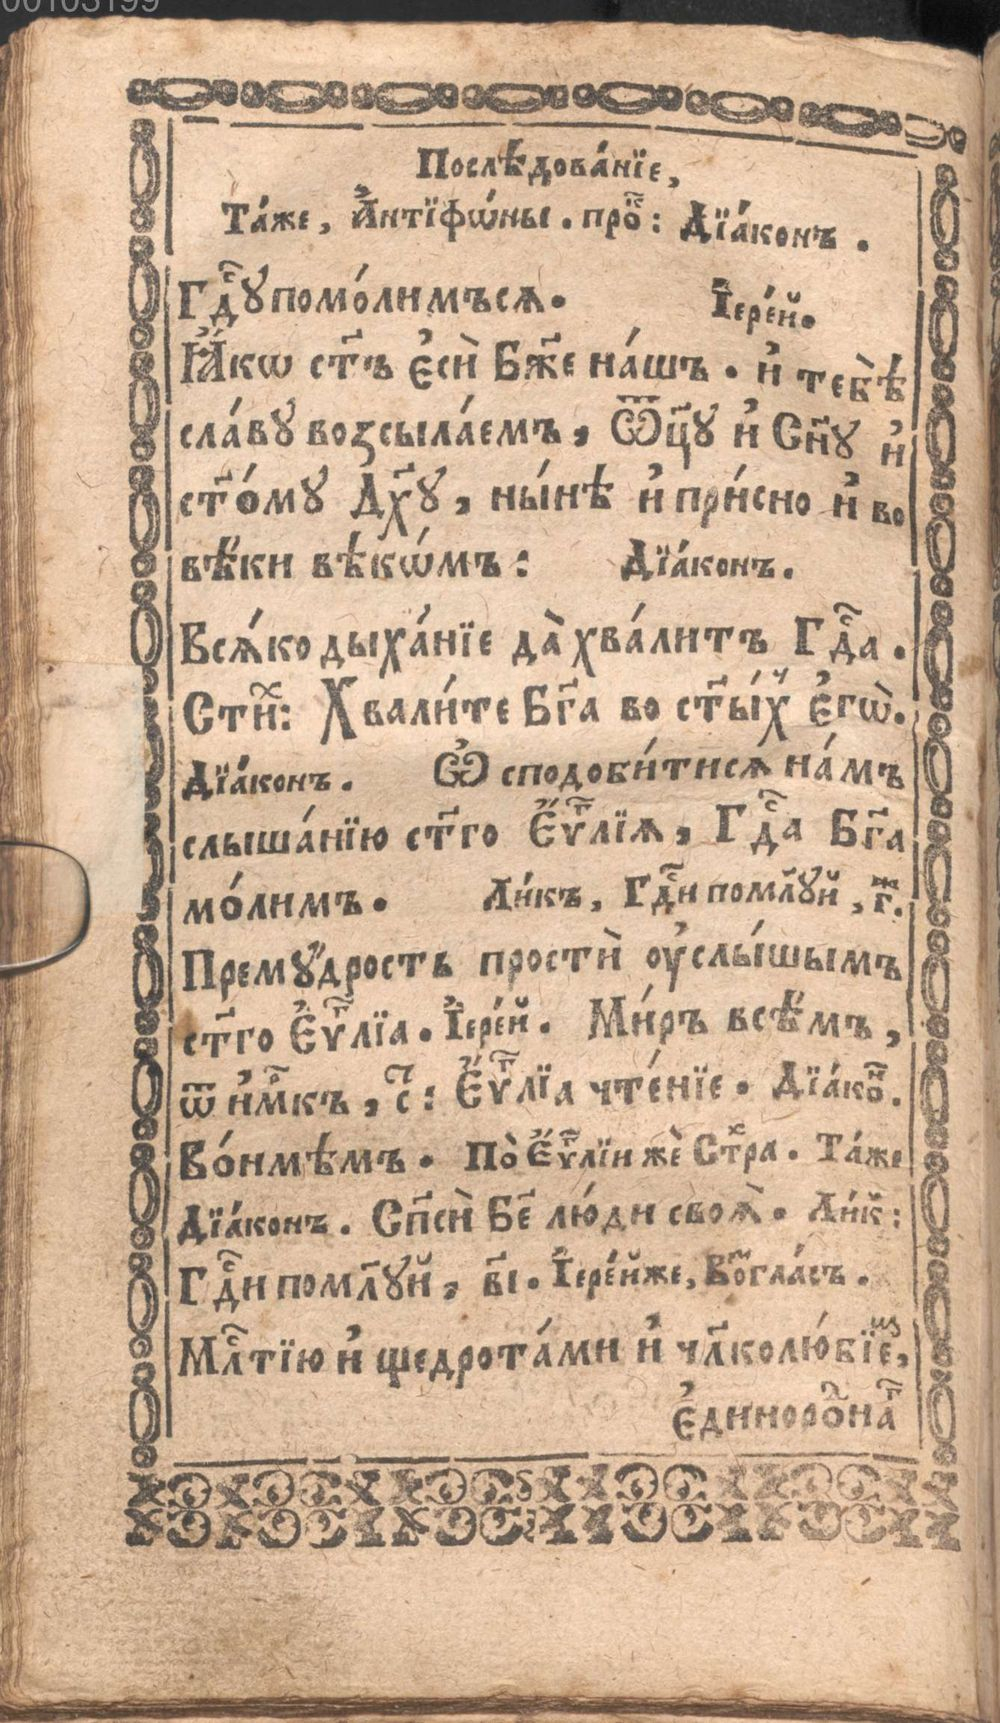 00103199
Послѣ́дова́нїе,
Та́же, А҆нтїфѡ́ны. про҃к: Дїа́конъ.
Гдⷭ҇ꙋ помо́лимъсѧ. І҆ере́й.
Ꙗ҆́кѡ ст҃ъ є҆сѝ Бж҃е на́шъ. и҆ тебѣ̀
сла́вꙋ возсыла́емъ, Ѿц҃ꙋ и҆ Сн҃ꙋ и҆
ст҃о́мꙋ Дх҃ꙋ, ны́нѣ и҆ при́сно и҆ во
вѣ́ки вѣкѡ́мъ: Дїа́конъ.
Всѧ́ко дыха́нїе да̀ хва́литъ Гдⷭ҇а.
Стиⷯ: Хвали́те Бг҃а во ст҃ы́хъ є҆гѡ̀.
Дїа́конъ. Ѽ сподоби́тисѧ на́мъ
слыша́нїю ст҃го Є҆ѵ҃лїѧ, Гдⷭ҇а Бг҃а
мо́лимъ. Ли́къ, Гдⷭ҇и пом҃лꙋй, г҃ⷤ.
Премꙋ́дрость простѝ оу҆слы́шымъ
ст҃го Є҆ѵ҃лїа. І҆ере́й. Ми́ръ всѣ́мъ,
ѿ и҆м҃къ, с҃: Є҆ѵ҃лїа чте́нїе. Дїа́коⷩ҇.
Во́нмѣмъ. По̀ Є҆ѵ҃лїи жѐ Стⷯра. Та́же
Дїа́конъ. Сп҃сѝ Бе҃ лю́ди своѧ̀. Ли́к:
Гдⷭ҇и пом҃лꙋй, в҃і. І҆ере́йже, Во҃глас́ъ.
Млⷭ҇тїю и҆ щедрота́ми и҆ чл҃колю́бїеⷨ,
є҆диноро҃на҃